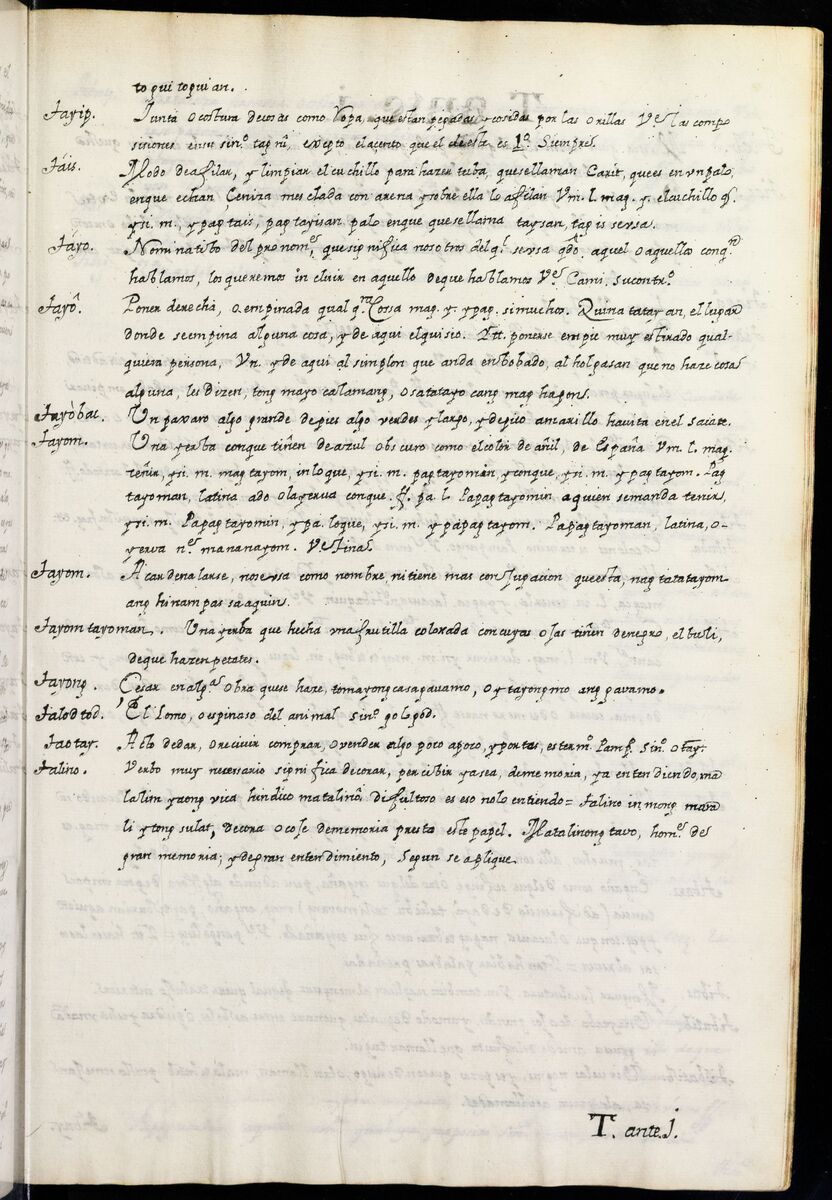 toqui toquian.
Tayip. Junta o costura de cosas como Ropa, que estan pegadas y cosidas por las orillas Vs. las compo
sisiones en su sino. tagni, excepto el acento que el de este es 1o. Siempre.
Táis. Modo de afilar, y limpiar el cuchillo para hazer tuba, que se llaman Carit, que es en vn palo,
en que echan Ceniza mesclada con arena y sobre ella lo afilan Vm. l. mag. y. el cuchillo q.
y si. m. y pag tais, pag tayisan palo en que que se llama taysan, tagis se vsa.
Táyo. Nominatibo del pronome, que significa nosotros del ql. se vsa qdo. aquel o aquellos con qn
hablamos, los queremos incluir en aquello de que hablamos Vs. Cami, su contro.
Tayô. Poner derecha, o empinada qualqra. Cossa mag. y. y pag. si muchos. Quina tatayan, el lugar
donde se empina alguna cosa, y de aqui el quisio. Itt. ponerse en pie muy estirado qual-
quiera persona, Vn. y de aqui al simplon que anda enbobado, al holgasan que no haze cosa
alguna, les Dizen, tong mayo calamang, o satatayo cang mag hapon.
Tayòbac. Un paxaro algo grande de pies algo verdes y largo, y de pico amarillo havita en el sacate.
Tayom. Una yerba con que tiñen de azul obscuro como el color de añil, de España Vm. l. mag.
teñir, y si. m. mag tayom, in loque, y si. m. pag tayomin y conque, y si. m. y pag tayom. Pag
tayoman, latina ado o la yerua conque. ff. pa. l. Papag tayomin a quien se manda tenir,
y si. m. Papag tayomin, y pa. loque, y si. m. y papag tayom. Papag tayoman, la tina, o
yerva no. mananayom. Vs tina.
Tayom. Acardenalarse, no se vsa como nombre, ni tiene mas conjugacion que esta, nag tatatayom
ang hinampas sa aquin.
Tayom tayoman. Una yerba que hecha vna frutilla colorada con cuyas ojas tiñen de negro, el buli,
de que hazen petates.
Tayong. Cesar en alga. obra que se haze, tomayong casa gavamo, o ytayong mo ang gavamo.
Talodtod. El Lomo, o espinaso del animal sino. gologod.
Taotay. Acto de dar, o recivir comprar, o vender algo poco a poco, y por tas, es termo. Pamp. sino. otay.
Talino. Verbo muy necessario significa decorar, percibir ya sea, de memoria, ya entendiendo, ma
lalim yaong vica hindico matalinô, Dificultoso es eso no lo entiendo = talino in mong mara
li ytong sulat, decora o coje de memoria presto este papel. Matalinong tavo, home. de
gran memoria; y de gran entendimiento, segun se aplique
T. ante. j.